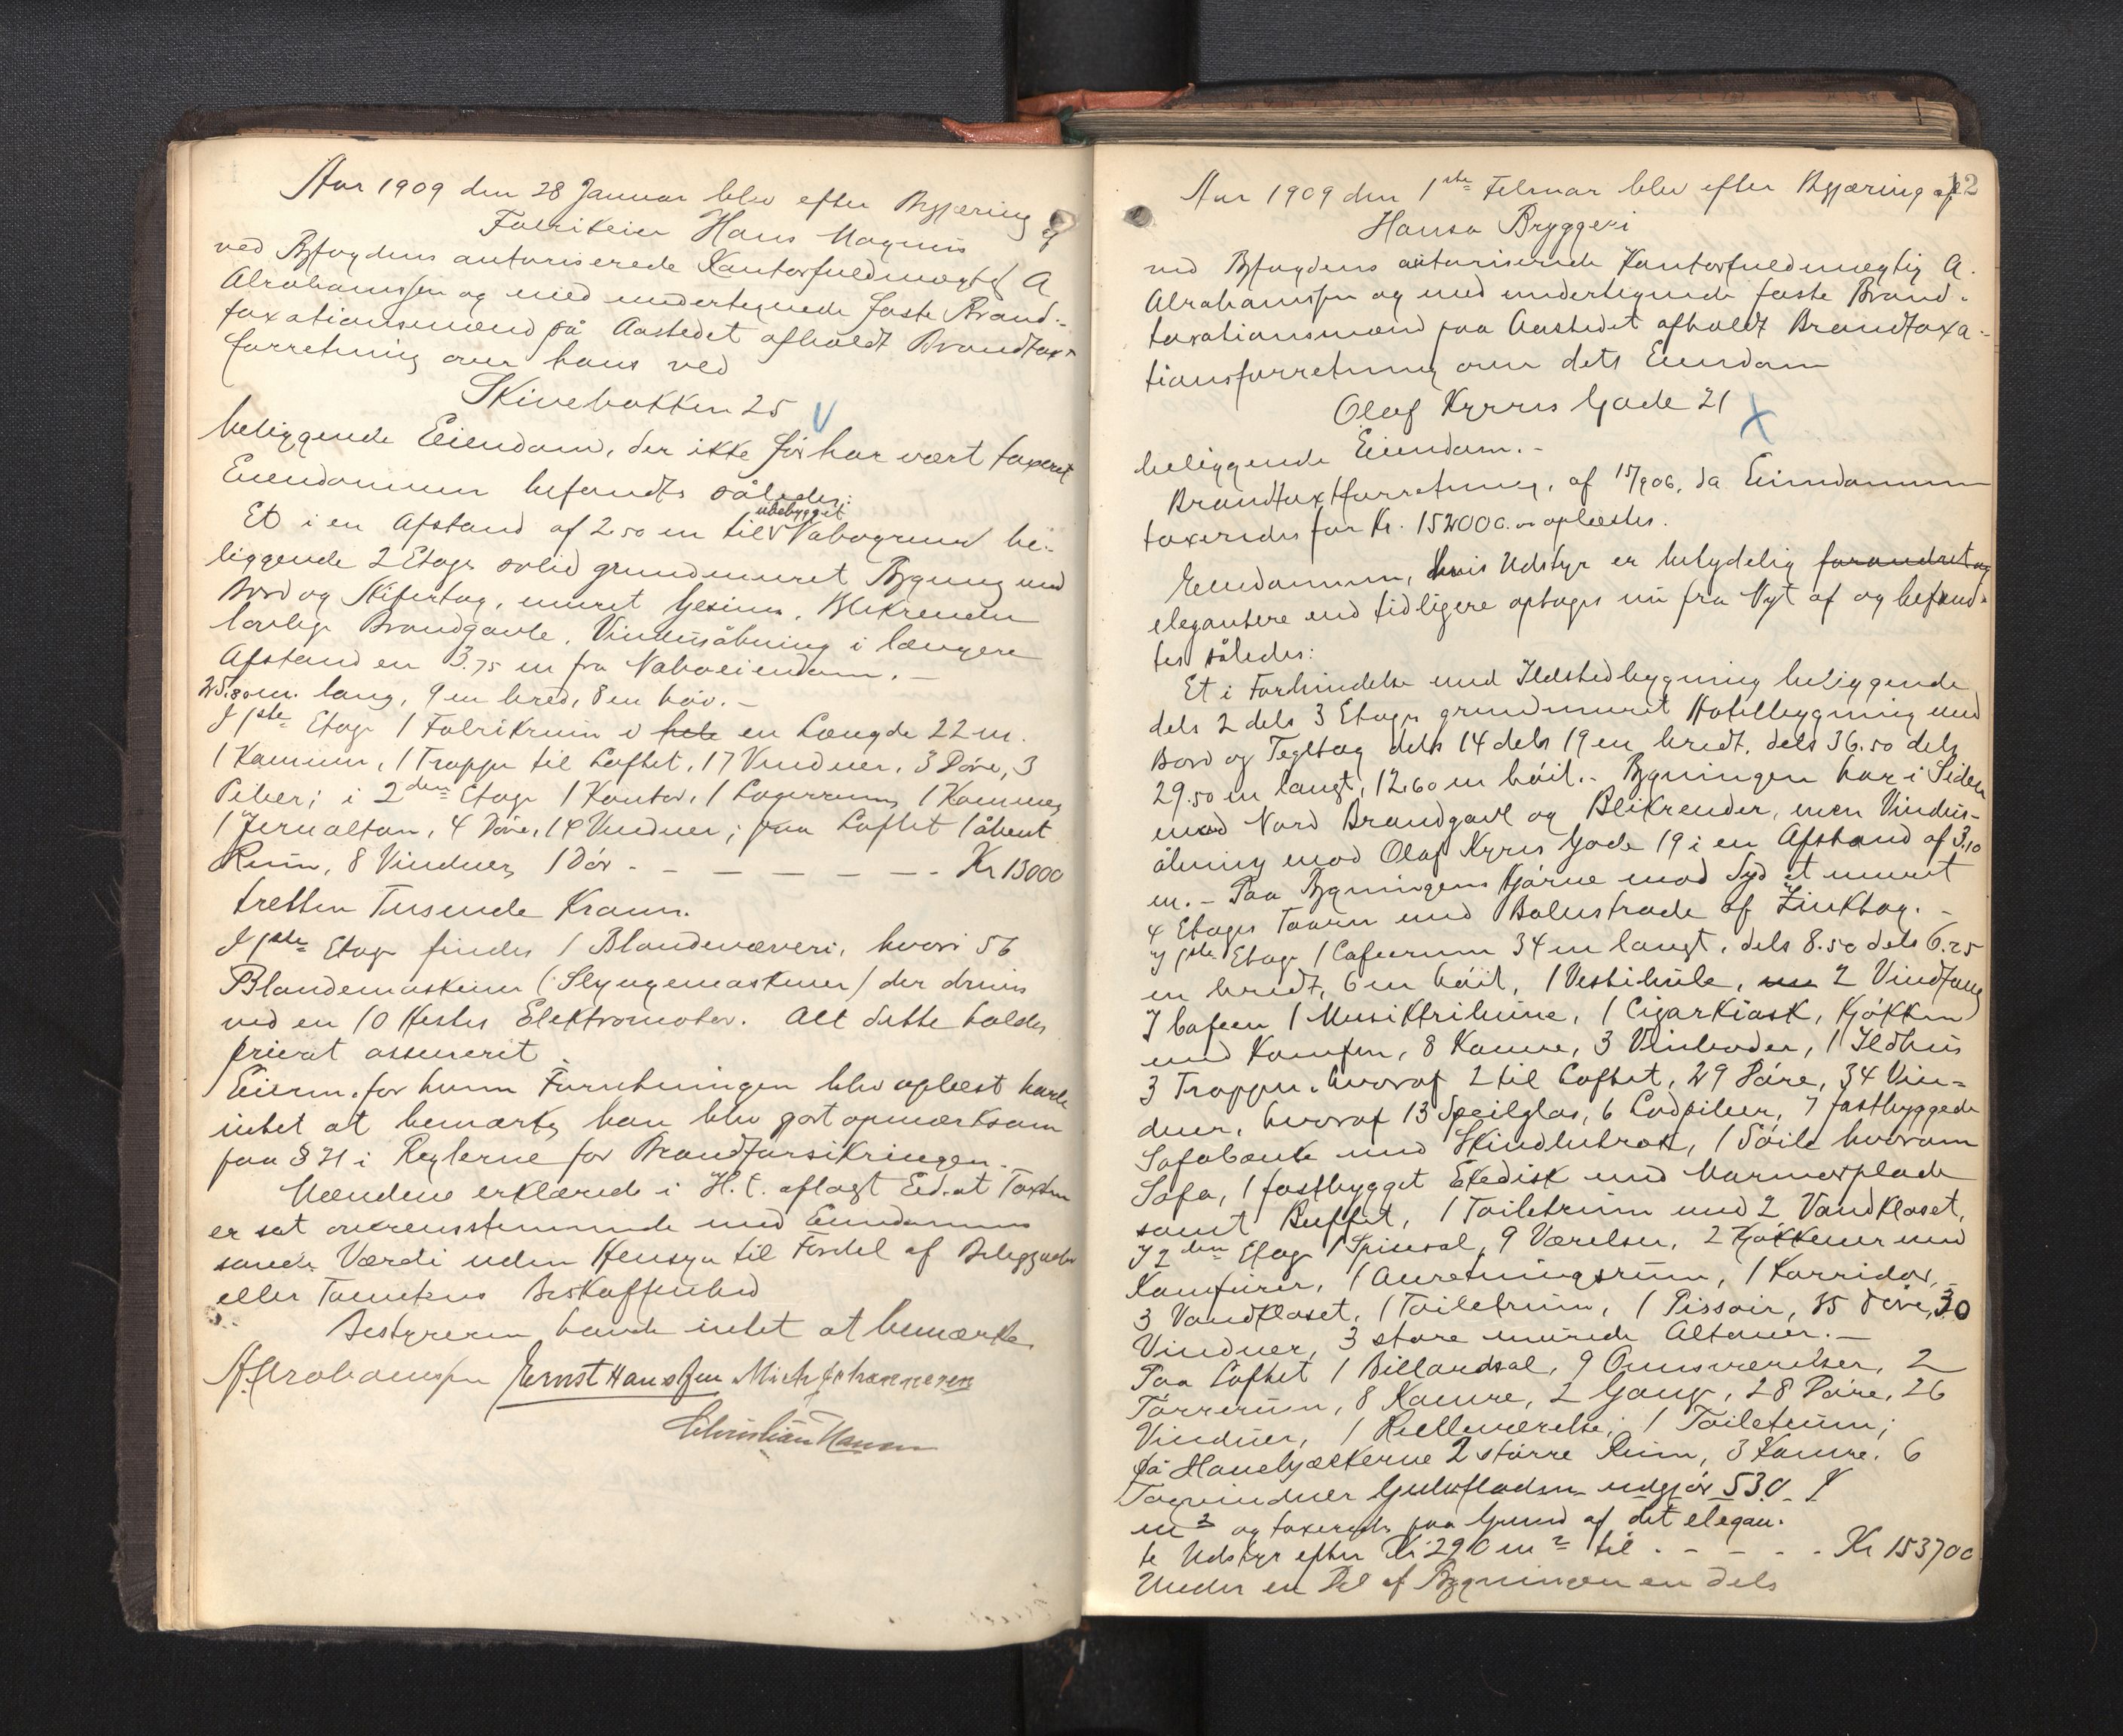 Aar 1909 den 28 Januar blev efter Begjæring af
Fabrikeier Hans Magnus
ved Byfogdens autoriserede Kontorfuldmægtig A
Abrahamssen og med undertegnede faste Brand-
taxationsmænd på Aastedet afholdt Brandtaxt
forretning over hans ved
Skivebakken 25
beliggende Eiendom, der ikke før har vært taxeret
Eiendommen befandts således:
ubebygget
Et i en Afstand af 2.50 m til Nabogrund be-
liggende 2 Etages solid grundmuret Bygning med
Bord og Skifertag, muret Gesims, Blikrender
lovlige Brandgavle. Vinduesåbning i længere
Afstand en 3.75 m fra Naboeiendom. -
25.80 m. lang, 9 m bred, 8 m høi. -
I 1ste Etage 1 Fabrikrum i hele en Længde 22 m.
1 Kammer, 1 Trappe til Loftet, 17 Vinduer, 3 Døre, 3
Piber; i 2den Etage 1 Kontor, 1 Lagerrum, 1 Kammer,
1 Jernaltan, 4 Døre, 14 Vinduer; paa Loftet 1 åbent
Rum, 8 Vinduer, 1 Dør - - - - - - - Kr 13000
tretten Tusende Kroner.
I 1ste Etage findes 1 Blondevæveri, hvori 56
Blondemaskiner (: Slyngemaskiner) der drives
ved en 10 Hestes Elektromotor. Alt dette holdes
privat assurerit.
Eieren, for hvem Forretningen blev oplæst havde
intet at bemærke, han blev gjort opmærksom
paa § 21 i Reglerne for Brandforsikringen.
Mændene erklærede i H. t. aflagt Ed, at Taxten
er sat overensstemmende med Eiendommens
sande Værdi uden Hensyn til Fordel af Beliggenhed
eller Tomtens Beskaffenhed
Bestyreren havde intet at bemærke.
A. Abrahamssen Ernst Hanssen Mich Johannesen
Christian Hansen
12
Aar 1909 den 1ste Februar blev efter Begjæring af
Hansa Bryggeri
ved Byfogdens autoriserede Kontorfuldmægtig A.
Abrahamssen og med undertegnede faste Brand-
taxationsmænd paa Aastedet afholdt Brandtaxa-
tionsforretning over dets Eiendom
Olaf Kyrres Gade 21
beliggende Eiendom. -
Brandtaxtforretning, af 15/9 06, da Eiendommen
taxeredes for Kr. 152000.00 oplæstes.
Eiendommen, hvis Udstyr er betydelig forandret og
elegantere end tidligere optages nu fra Nyt af og befand-
tes således:
Et i Forbindelse med Ildstedbygning beliggende
dels 2 dels 3 Etages grundmuret Hotelbygning med
Bord og Tegltag dels 14 dels 19 m bredt, dels 36.50 dels
29.50 m langt, 12.60 m høit. - Bygningen har i Siden
mod Nord Brandgavl og Blikrender, men Vindus-
åbning mod Olaf Kyrres Gade 19 i en Afstand af 3.10
m. - Paa Bygningens Hjørne mod Syd et muret
4 Etages Taarn med Balustrade af Zinktag. -
I 1ste Etage 1 Cafeerum 34 m langt, dels 8.50 dels 6.25
m bredt, 6 m høit, 1 Vestibule, 2 Vindfang
I Cafeen 1 Musiktribune, 1 Cigarkiosk, Kjøkken
med Komfur, 8 Kamre, 3 Vinboder, 1 Ildhus
3 Trapper, hvoraf 2 til Loftet, 29 Døre, 34 Vin-
duer, hvoraf 13 Speilglas, 6 Lodpiber, 7 fastbyggede
Sofabænke med Skindbetræk, 1 Søile hvorom
Sofa, 1 fastbygget Exedisk med Marmorplade
samt Buffet, 1 Toiletrum med 2 Vandkloset,
I 2den Etage 1 Spisesal, 9 Værelser, 2 Kjøkkener med
Komfurer, 1 Anretningsrum, 1 Korridor, -
3 Vandkloset, 1 Toiletrum, 1 Pissoir, 35 Døre, 30
Vinduer, 3 store murede Altaner. -
Paa Loftet 1 Billardsal, 9 Ovnsværelser, 2
Tørrerum, 8 Kamre, 2 Gange, 28 Døre, 26
Vinduer, 1 Rulleværelse, 1 Toiletrum;
på Hanebjælkerne 2 større Rum, 3 Kamre, 6
Tagvinduer Gulvfladen udgjør 530
m2 og taxeredes paa Grund af det elegan-
te Udstyr efter Kr 290 m2 til - - - - Kr 153700
Under en Del af Bygningen en dels